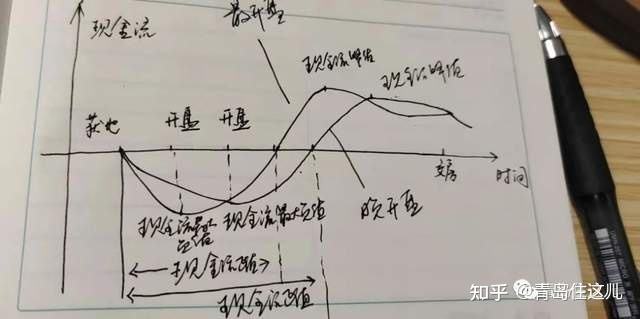 现金流
最开盘
现金流峰值
现金流峰值
获地
开盘
开盘
交房
时间
现金流最大负值
现金流最大负值
晚开盘
现金流回正
现金流回正
知乎 @青岛住这儿